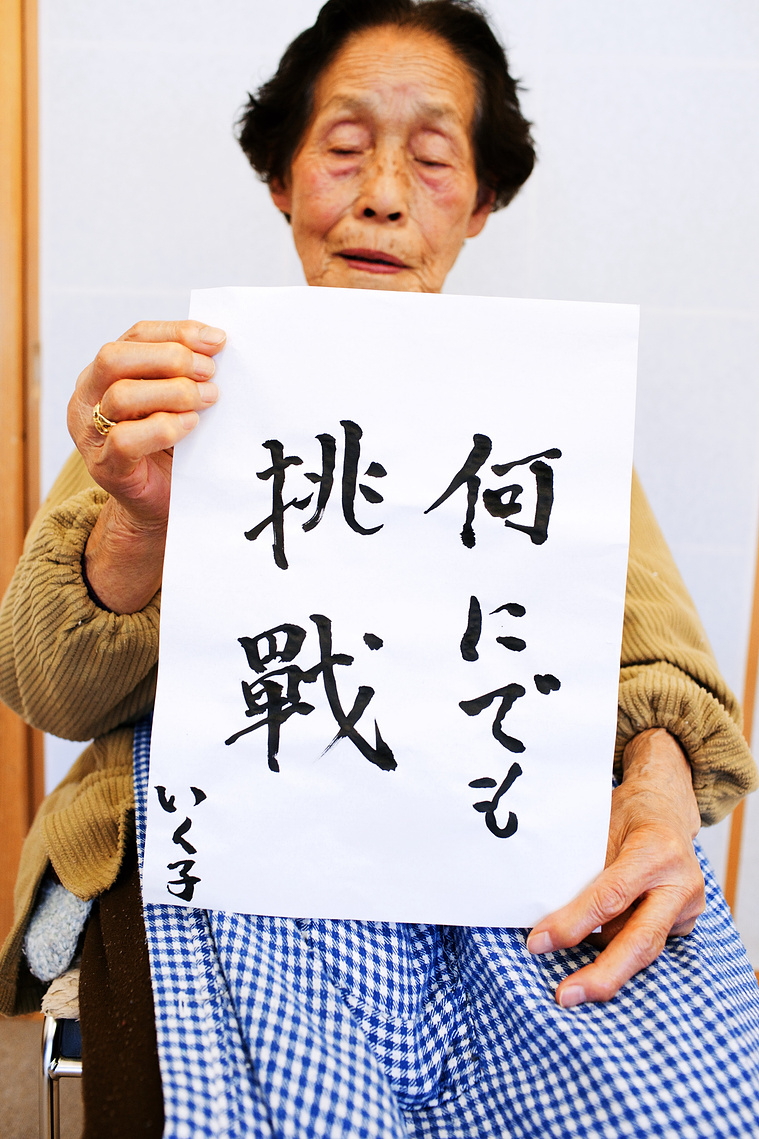 何にでも
挑戰
いく子